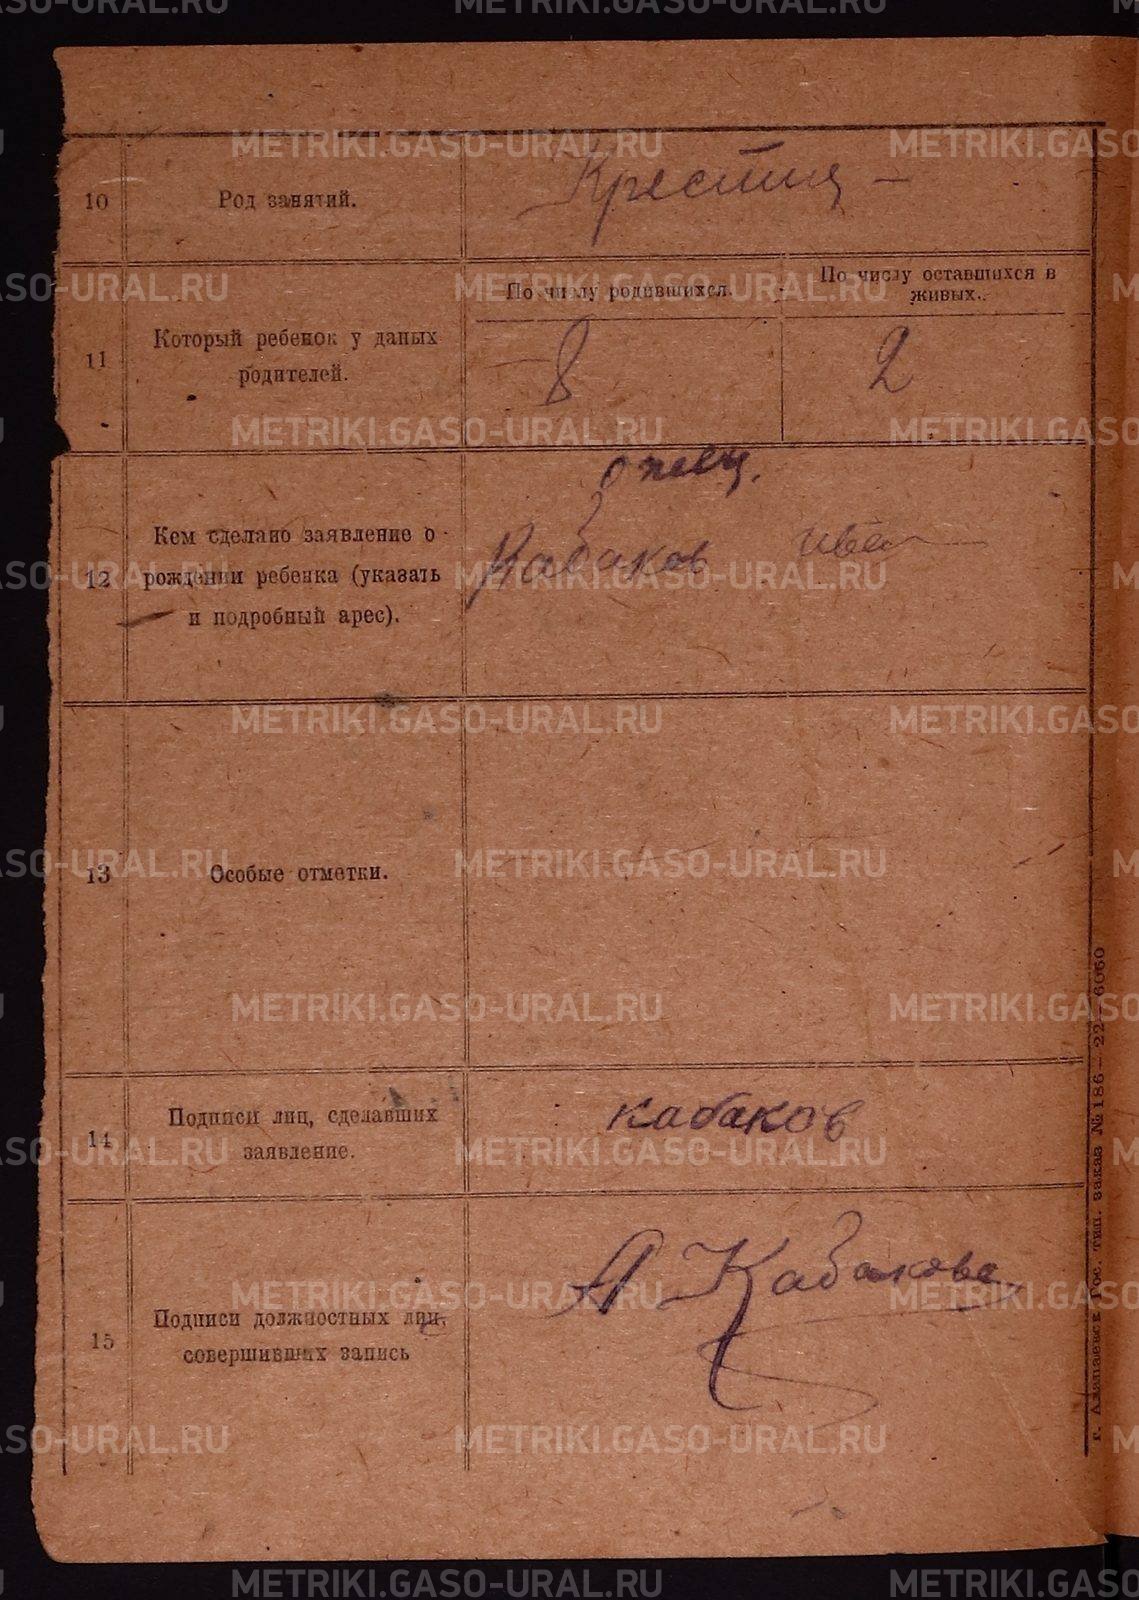 10
Род занятий.
Крестин
11
Который ребенок у даных
родителей.
По числу родившихся.
По числу оставшихся в
живых.
8
2
12
Кем сделано заявление о
рождении ребенка (указать
и подробный арес).
отец.
Кабаков Иван
13
Особые отметки.
14
Подписи лиц, сделавших
заявление.
кабаков
15
Подписи должностных лиц,
совершивших запись
А Кабакова
г. Алапаевск Гос. тип. заказ № 186 — 22 — 6060
METRIKI.GASO-URAL.RU